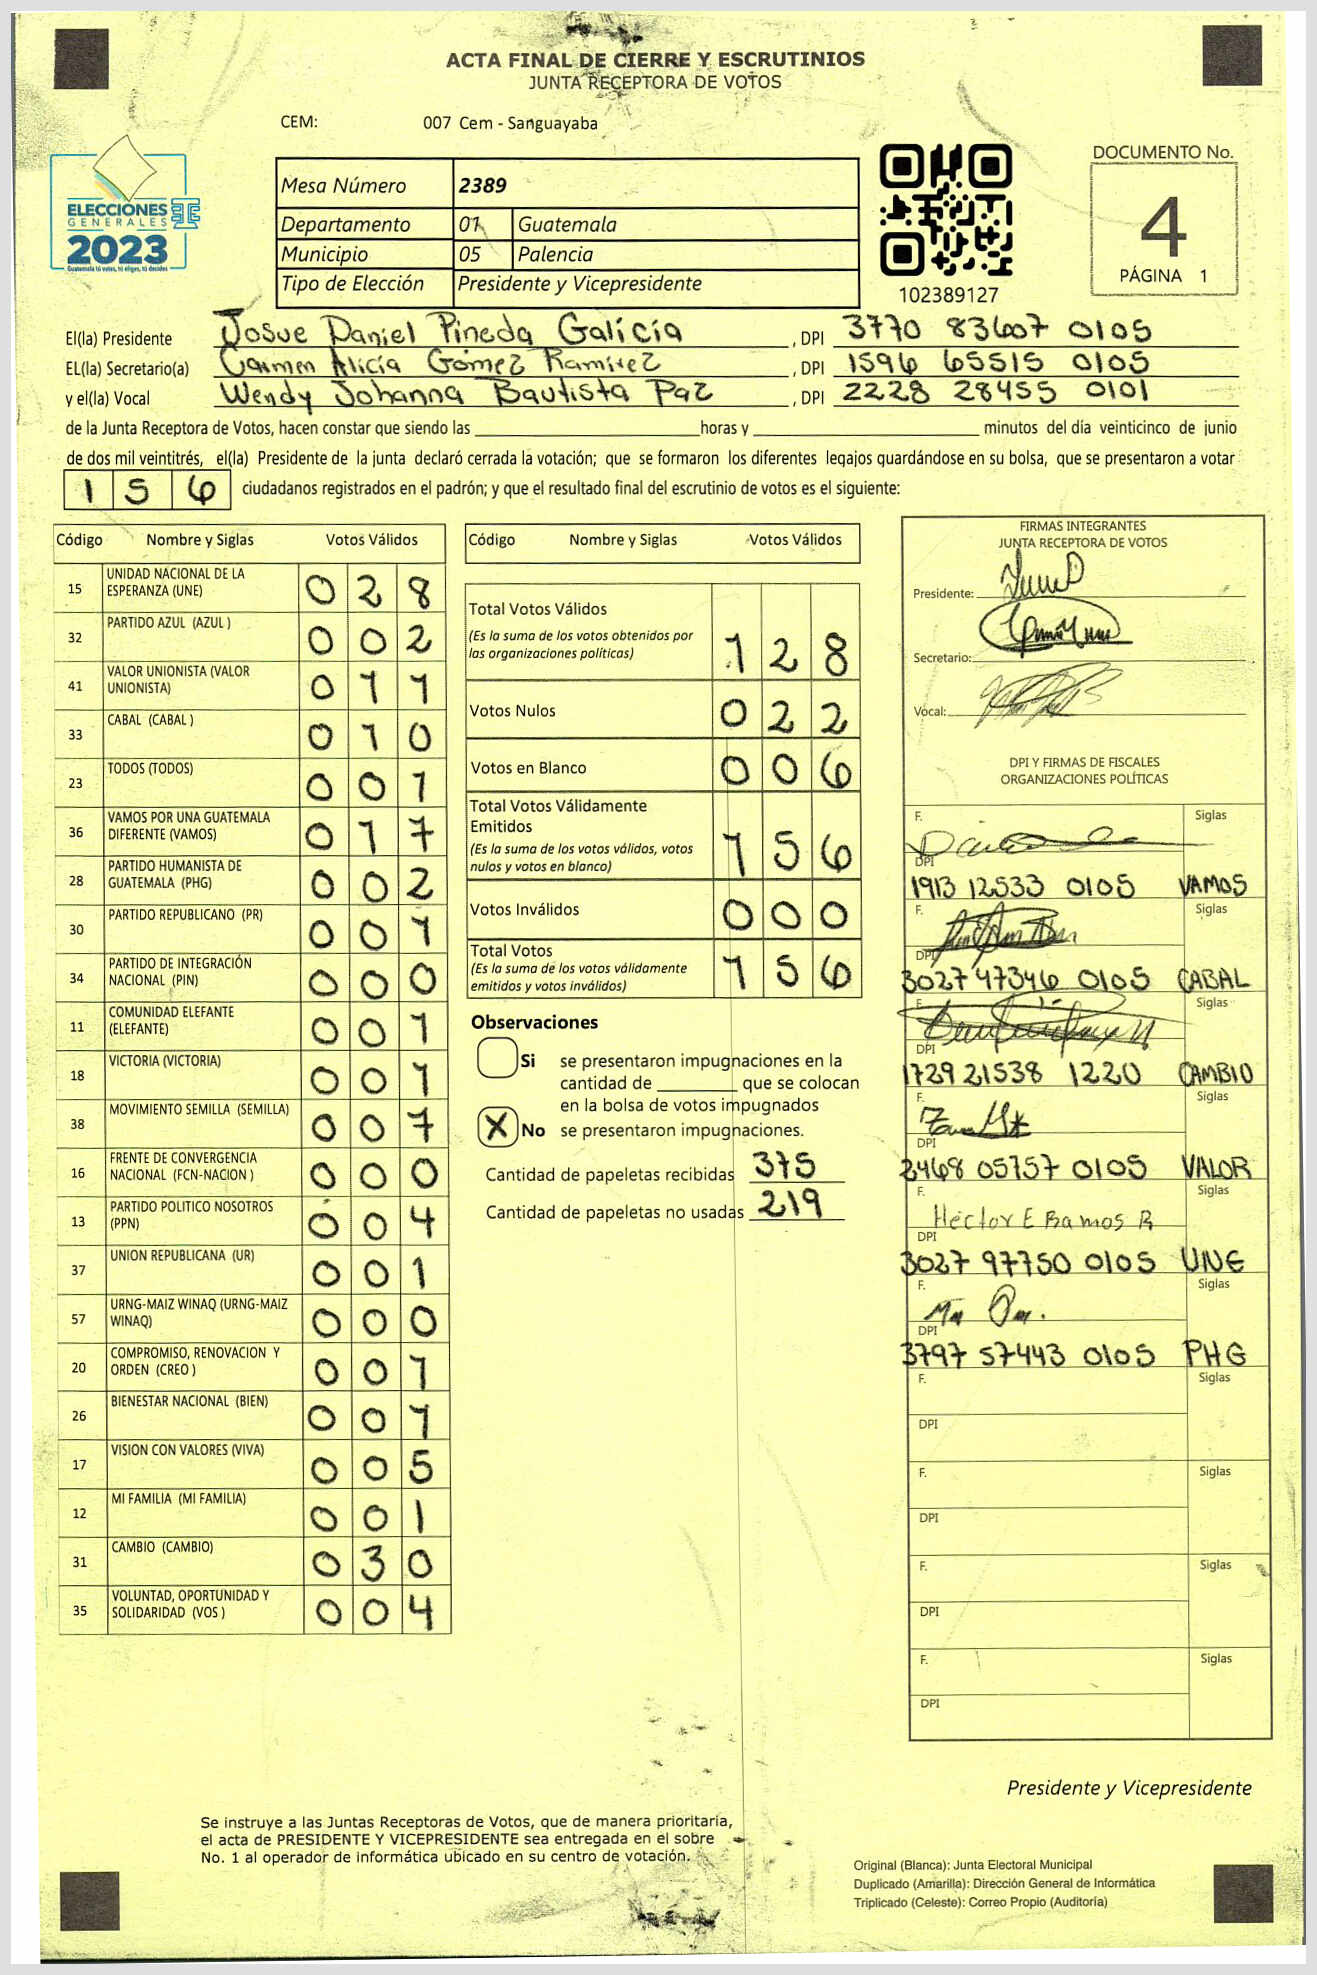 ACTA FINAL DE CIERRE Y ESCRUTINIOS
JUNTA RECEPTORA DE VOTOS
CEM: 007 Cem - Sanguayaba
ELECCIONES
GENERALES
2023
Guatemala tú votes, tú eliges, tú decides
Mesa Número 2389
Departamento 01 Guatemala
Municipio 05 Palencia
Tipo de Elección Presidente y Vicepresidente
102389127
DOCUMENTO No.
4
PÁGINA 1
El(la) Presidente Josue Daniel Pineda Galicia , DPI 3770 83607 0105
EL(la) Secretario(a) Carmen Alicia Gómez Ramírez , DPI 1596 65515 0105
y el(la) Vocal Wendy Johanna Bautista Paz , DPI 2228 28455 0101
de la Junta Receptora de Votos, hacen constar que siendo las horas y minutos del día veinticinco de junio
de dos mil veintitrés, el(la) Presidente de la junta declaró cerrada la votación; que se formaron los diferentes legajos quardándose en su bolsa, que se presentaron a votar
156 ciudadanos registrados en el padrón; y que el resultado final del escrutinio de votos es el siguiente:
Código Nombre y Siglas Votos Válidos
15 UNIDAD NACIONAL DE LA ESPERANZA (UNE) 028
32 PARTIDO AZUL (AZUL ) 002
41 VALOR UNIONISTA (VALOR UNIONISTA) 011
33 CABAL (CABAL ) 010
23 TODOS (TODOS) 001
36 VAMOS POR UNA GUATEMALA DIFERENTE (VAMOS) 017
28 PARTIDO HUMANISTA DE GUATEMALA (PHG) 002
30 PARTIDO REPUBLICANO (PR) 001
34 PARTIDO DE INTEGRACIÓN NACIONAL (PIN) 000
11 COMUNIDAD ELEFANTE (ELEFANTE) 001
18 VICTORIA (VICTORIA) 001
38 MOVIMIENTO SEMILLA (SEMILLA) 007
16 FRENTE DE CONVERGENCIA NACIONAL (FCN-NACION ) 000
13 PARTIDO POLITICO NOSOTROS (PPN) 004
37 UNION REPUBLICANA (UR) 001
57 URNG-MAIZ WINAQ (URNG-MAIZ WINAQ) 000
20 COMPROMISO, RENOVACION Y ORDEN (CREO ) 001
26 BIENESTAR NACIONAL (BIEN) 001
17 VISION CON VALORES (VIVA) 005
12 MI FAMILIA (MI FAMILIA) 001
31 CAMBIO (CAMBIO) 030
35 VOLUNTAD, OPORTUNIDAD Y SOLIDARIDAD (VOS ) 004
Código Nombre y Siglas Votos Válidos
Total Votos Válidos 128
(Es la suma de los votos obtenidos por
las organizaciones políticas)
Votos Nulos 022
Votos en Blanco 006
Total Votos Válidamente
Emitidos 156
(Es la suma de los votos válidos, votos
nulos y votos en blanco)
Votos Inválidos 000
Total Votos 156
(Es la suma de los votos válidamente
emitidos y votos inválidos)
Observaciones
Si se presentaron impugnaciones en la
cantidad de que se colocan
en la bolsa de votos impugnados
X No se presentaron impugnaciones.
Cantidad de papeletas recibidas 375
Cantidad de papeletas no usadas 219
FIRMAS INTEGRANTES
JUNTA RECEPTORA DE VOTOS
Presidente:
Secretario:
Vocal:
DPI Y FIRMAS DE FISCALES
ORGANIZACIONES POLÍTICAS
F. Siglas
DPI
1913 12533 0105 VAMOS
F. Siglas
DPI
3027 47346 0105 CABAL
F. Siglas
DPI
1729 21538 1220 CAMBIO
F. Siglas
DPI
2468 05757 0105 VALOR
F. Siglas
Héctor E Ramos R
DPI
3027 97750 0105 UNE
F. Siglas
DPI
3797 57443 0105 PHG
F. Siglas
DPI
F. Siglas
DPI
F. Siglas
DPI
F. Siglas
DPI
Presidente y Vicepresidente
Se instruye a las Juntas Receptoras de Votos, que de manera prioritaria,
el acta de PRESIDENTE Y VICEPRESIDENTE sea entregada en el sobre
No. 1 al operador de informática ubicado en su centro de votación.
Original (Blanca): Junta Electoral Municipal
Duplicado (Amarilla): Dirección General de Informática
Triplicado (Celeste): Correo Propio (Auditoría)